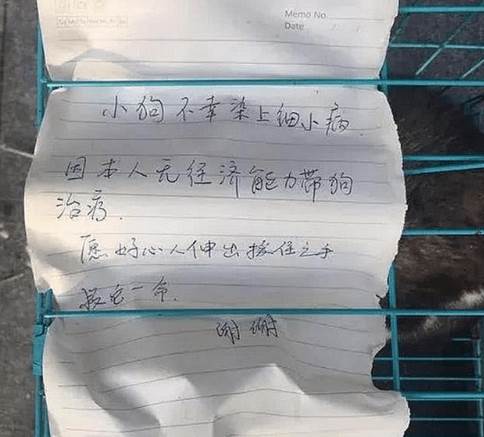 Memo No.
Date
小狗不幸染上细小病
因本人无经济能力带狗
治疗.
愿好心人伸出援住之手
救它一命.
谢谢